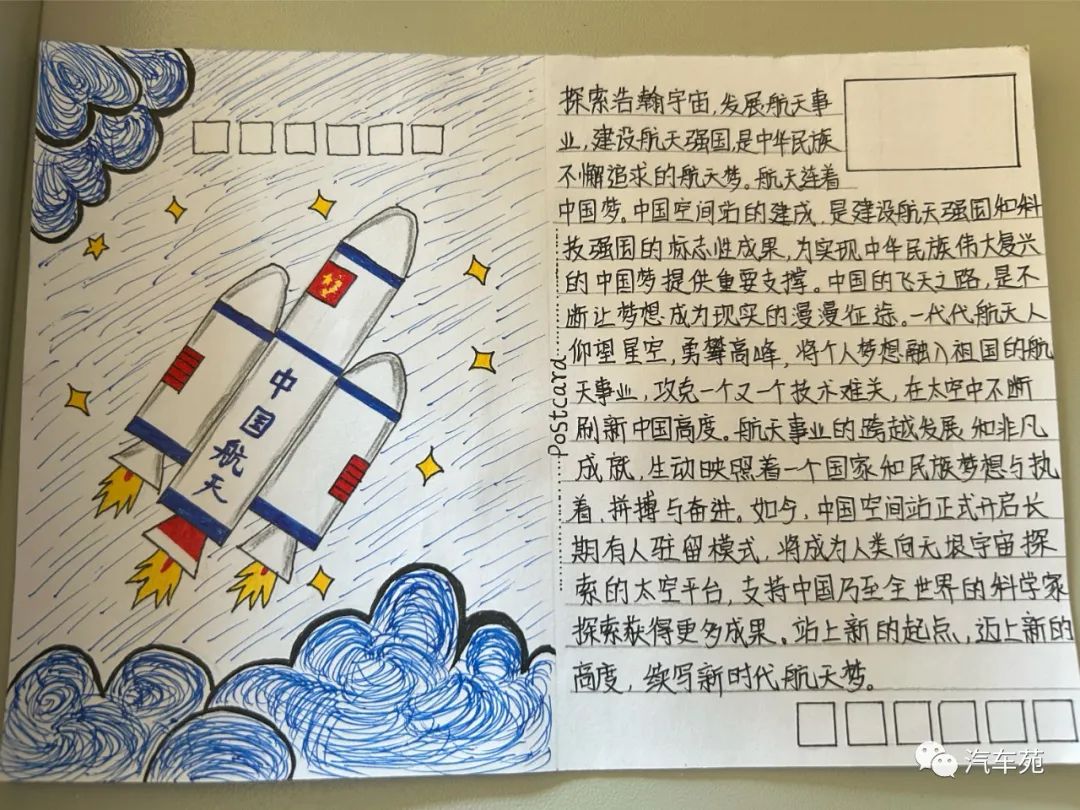 中国航天
探索浩瀚宇宙,发展航天事
业,建设航天强国,是中华民族
不懈追求的航天梦。航天连着
中国梦。中国空间站的建成,是建设航天强国和科
技强国的标志性成果,为实现中华民族伟大复兴
的中国梦提供重要支撑。中国的飞天之路,是不
断让梦想成为现实的漫漫征途。一代代航天人
仰望星空,勇攀高峰,将个人梦想融入祖国的航
天事业,攻克一个又一个技术难关,在太空中不断
刷新中国高度。航天事业的跨越发展和非凡
成就,生动映照着一个国家和民族梦想与执
着、拼搏与奋进。如今,中国空间站正式开启长
期有人驻留模式,将成为人类向无垠宇宙探
索的太空平台,支持中国乃至全世界的科学家
探索获得更多成果。站上新的起点,迈上新的
高度,续写新时代航天梦。
Postcard
汽车苑